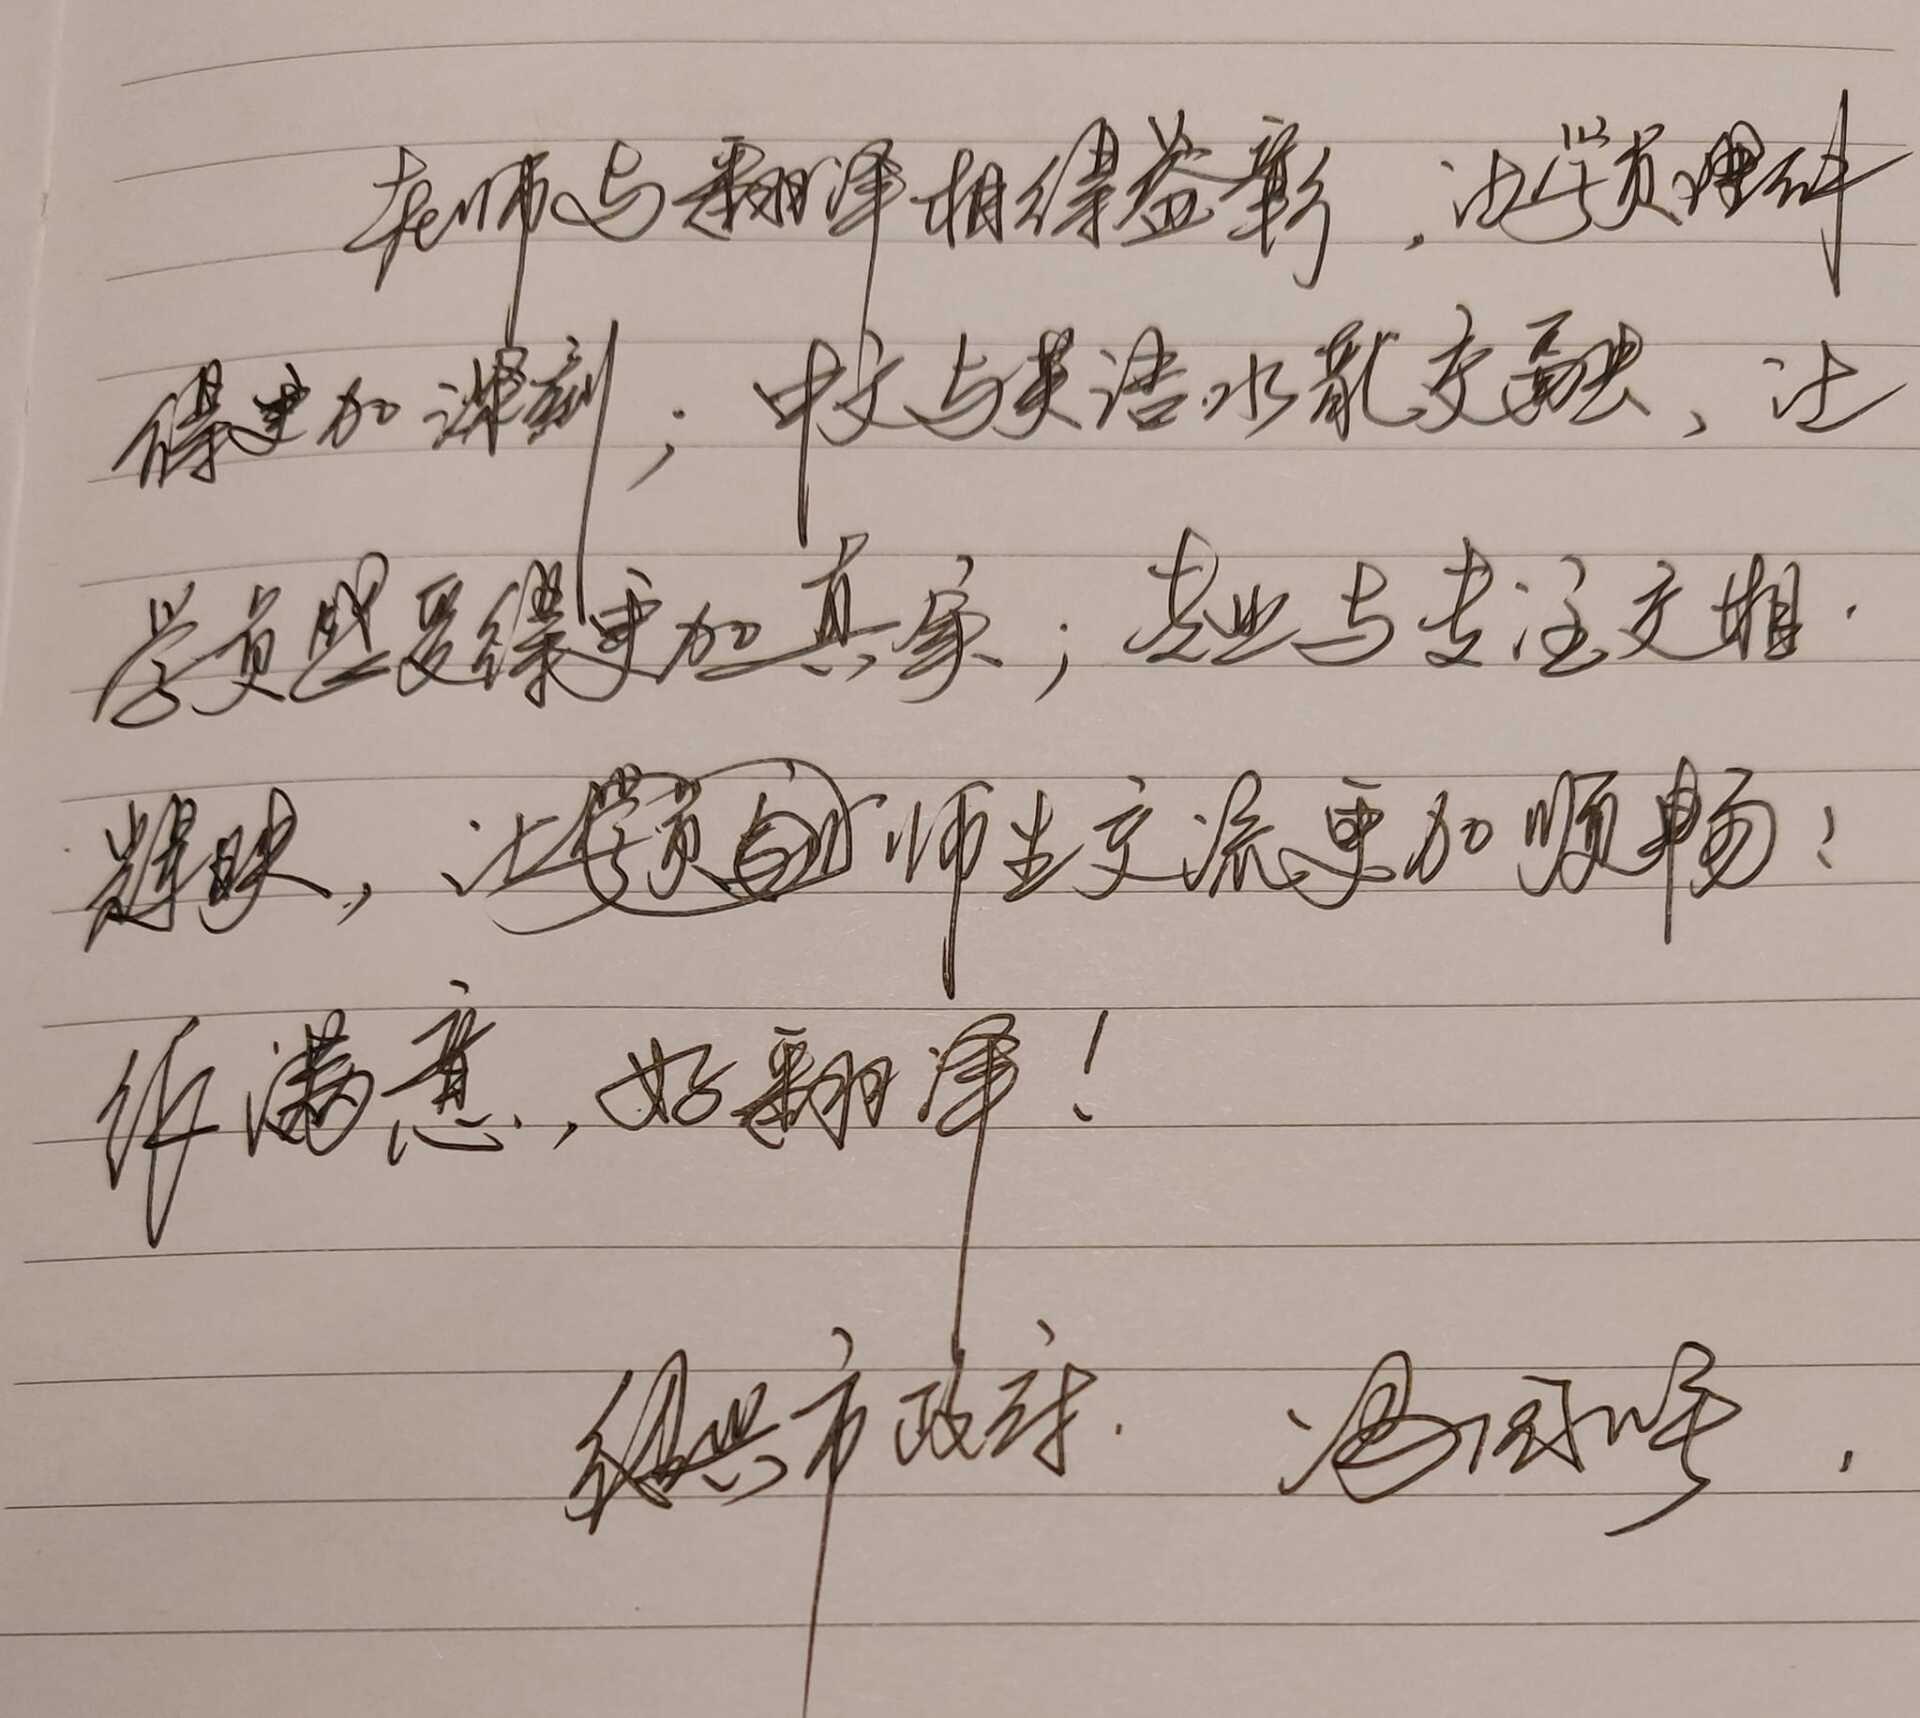 老师与翻译相得益彰，让学员理解
得更加深刻；中文与英语水乳交融，让
学员感受得更加真实；专业与专注交相
辉映，让师生交流更加顺畅！
很满意，好翻译！
绍兴市政府 冯